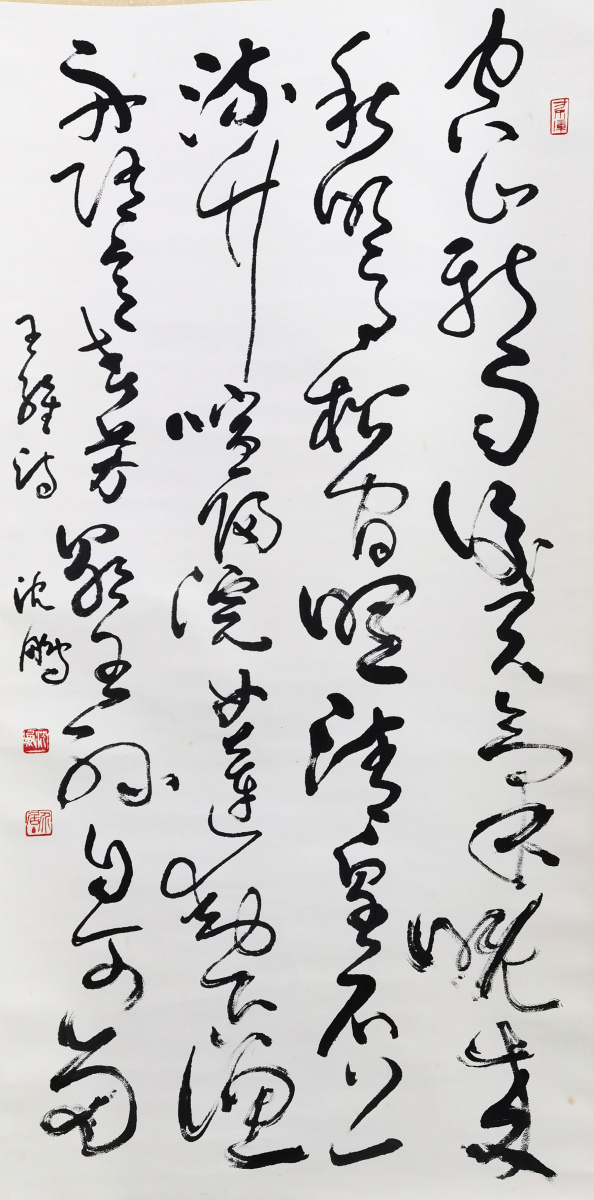 空山新雨後天氣晚來
秋明月松間照清泉石上
流竹喧歸浣女蓮動下漁
舟隨意春芳歇王孫自可留
王維詩 沈鵬